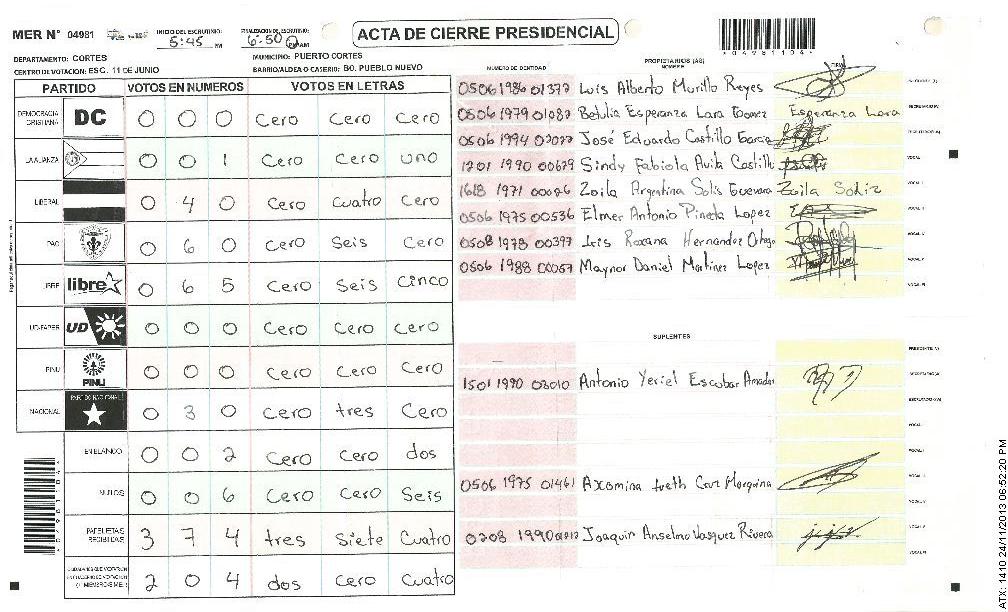 MER N° 04981
INICIO DEL ESCRUTINIO: 5:45 PM
FINALIZACION DE ESCRUTINIO: 6:50 PM AM
ACTA DE CIERRE PRESIDENCIAL
*04981104*
DEPARTAMENTO: CORTES
MUNICIPIO: PUERTO CORTES
CENTRO DE VOTACION: ESC. 11 DE JUNIO
BARRIO/ALDEA O CASERIO: BO. PUEBLO NUEVO
PARTIDO VOTOS EN NUMEROS VOTOS EN LETRAS
DEMOCRACIA CRISTIANA DC 0 0 0 Cero Cero Cero
LA ALIANZA 0 0 1 Cero Cero uno
LIBERAL 0 4 0 Cero Cuatro Cero
PAC 0 6 0 Cero Seis Cero
LIBRE libre 0 6 5 Cero Seis Cinco
UD-FAPER UD 0 0 0 Cero Cero Cero
PINU PINU 0 0 0 Cero Cero Cero
NACIONAL PARTIDO NACIONAL 0 3 0 Cero tres Cero
EN BLANCO 0 0 2 Cero Cero dos
NULOS 0 0 6 Cero Cero Seis
PAPELETAS RECIBIDAS 3 7 4 tres Siete Cuatro
2 0 4 dos Cero Cuatro
PROPIETARIOS (AS)
NUMERO DE IDENTIDAD NOMBRE FIRMA
0506 1986 01377 Luis Alberto Murillo Reyes
0506 1979 01087 Betulia Esperanza Lara Gomez Esperanza Lara
0506 1994 02077 José Eduardo Castillo Garcia
1201 1990 00679 Sindy Fabiola Avila Castillo VOCAL
1618 1971 00026 Zoila Argentina Solis Guevara Zoila Soliz VOCAL I
0506 1975 00536 Elmer Antonio Pineta Lopez
0508 1978 00397 Roxana Hernandez Ortega
0506 1988 00057 Maynor Daniel Martinez Lopez
SUPLENTES
1501 1990 03010 Antonio Yeriel Escobar Amador
0506 1975 01461
0208 1990 Joaquin Anselmo Vasquez Rivera
ATX: 1410 24/11/2013 06:52:20 PM